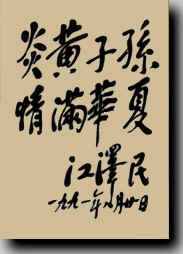 炎黄子孫
情滿華夏
江澤民
一九九一年八月廿日